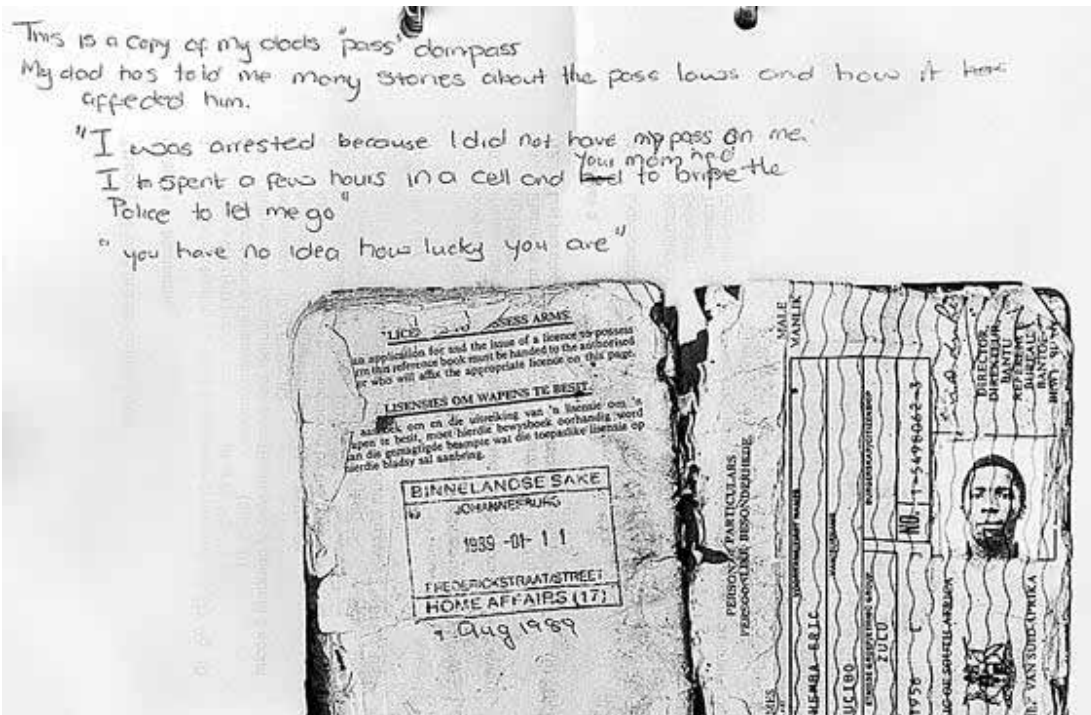 This is a copy of my dads "pass" dompass
My dad has told me many stories about the pass laws and how it has
affected him.
"I was arrested because I did not have my pass on me.
your mom had
I spent a few hours in a cell and had to bribe the
Police to let me go"
"you have no idea how lucky you are"
SESS ARMS.
an application for and the issue of a licence to possess
this reference book must be handed to the authorised
who will affix the appropriate licence on this page.
LISENSIES OM WAPENS TE BESIT.
om en die uitreiking van 'n lisensie om 'n
te besit, moet hierdie bewysboek oorhandig word
die gemagtigde beampte wat die toepaslike lisensie op
hierdie bladsy sal aanbring.
BINNELANDSE SAKE
JOHANNESBURG
1989 -01- 11
FREDERICKSTRAAT/STREET
HOME AFFAIRS (17)
Aug 1989
PERSONAL PARTICULARS.
PERSOONLIKE BESONDERHEDE.
MALE
MANLIK
ZULU
1956
NO. 1-5498062-3
DIRECTOR,
DIREKTEUR,
BANTU
REFERENCE
BUREAU.
BANTOE-
VAN SUID-AFRIKA